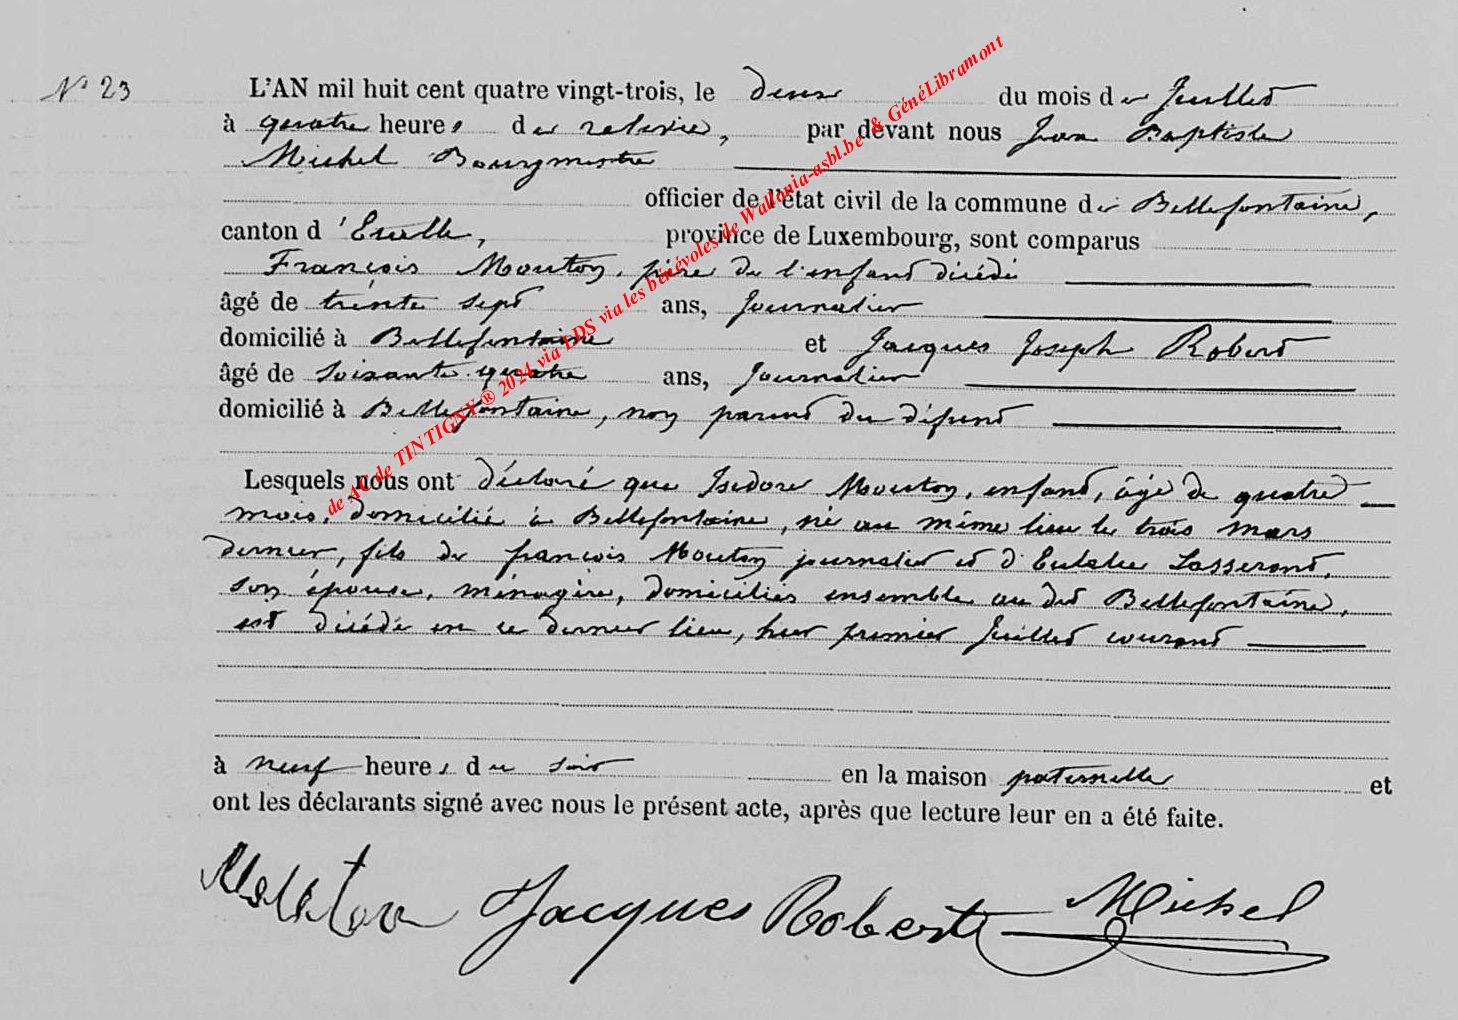 N° 23
L'AN mil huit cent quatre vingt-trois, le deux du mois de Juillet
à quatre heures de relevée, par devant nous Jean Baptiste
Michel Bourgmestre
officier de l'état civil de la commune de Bellefontaine,
canton d'Etalle, province de Luxembourg, sont comparus
François Mouton, père de l'enfant décédé
âgé de trente sept ans, Journalier
domicilié à Bellefontaine et Jacques Joseph Robert
âgé de soixante-quatre ans, Journalier
domicilié à Bellefontaine, non parent du défunt
Lesquels nous ont déclaré que Isidore Mouton, enfant, âgé de quatre
mois, domicilié à Bellefontaine, né au même lieu le trois mars
dernier, fils de françois Mouton journalier et d'Eulalie Lasserant,
son épouse, ménagère, domiciliés ensemble au dit Bellefontaine,
est décédé en ce dernier lieu, hier premier Juillet courant
à neuf heures du soir en la maison paternelle et
ont les déclarants signé avec nous le présent acte, après que lecture leur en a été faite.
Jacques Robert Michel
de AC de TINTIGNY ® 2024 via LDS via les bénévoles de Wallonia-asbl.be & GénéLibramont